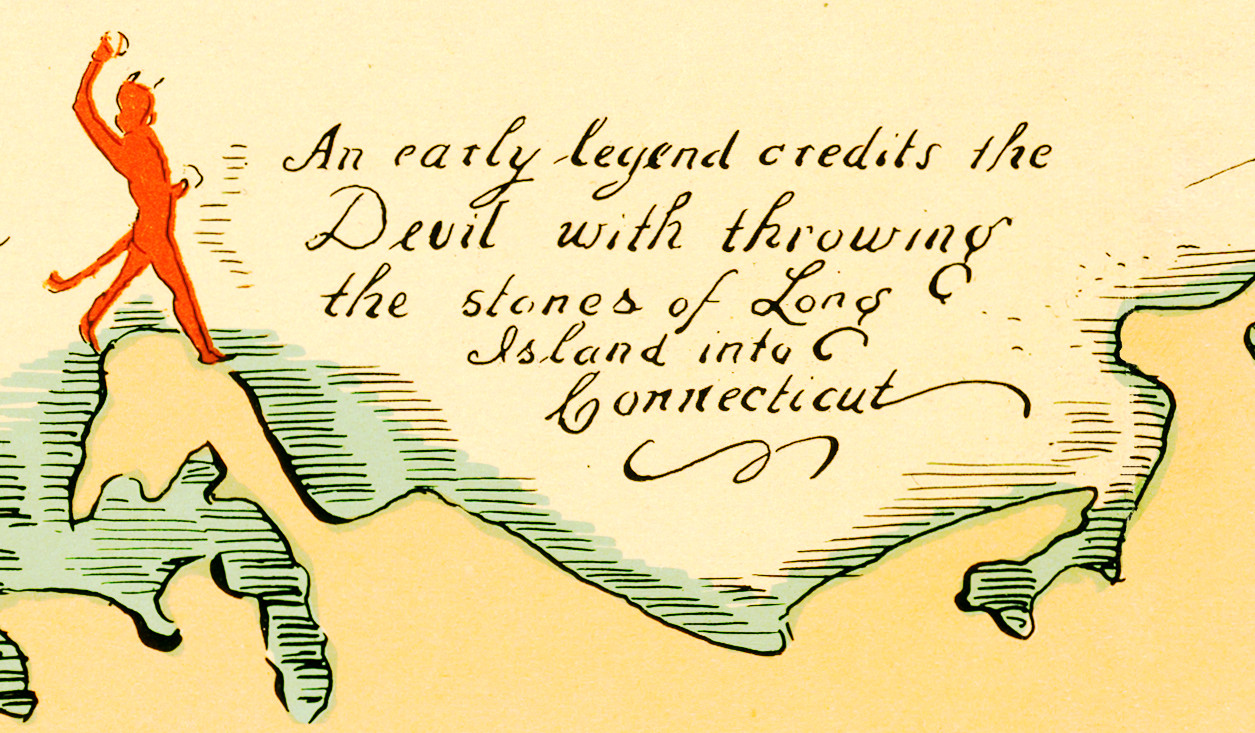 An early legend credits the
Devil with throwing
the stones of Long
Island into
Connecticut